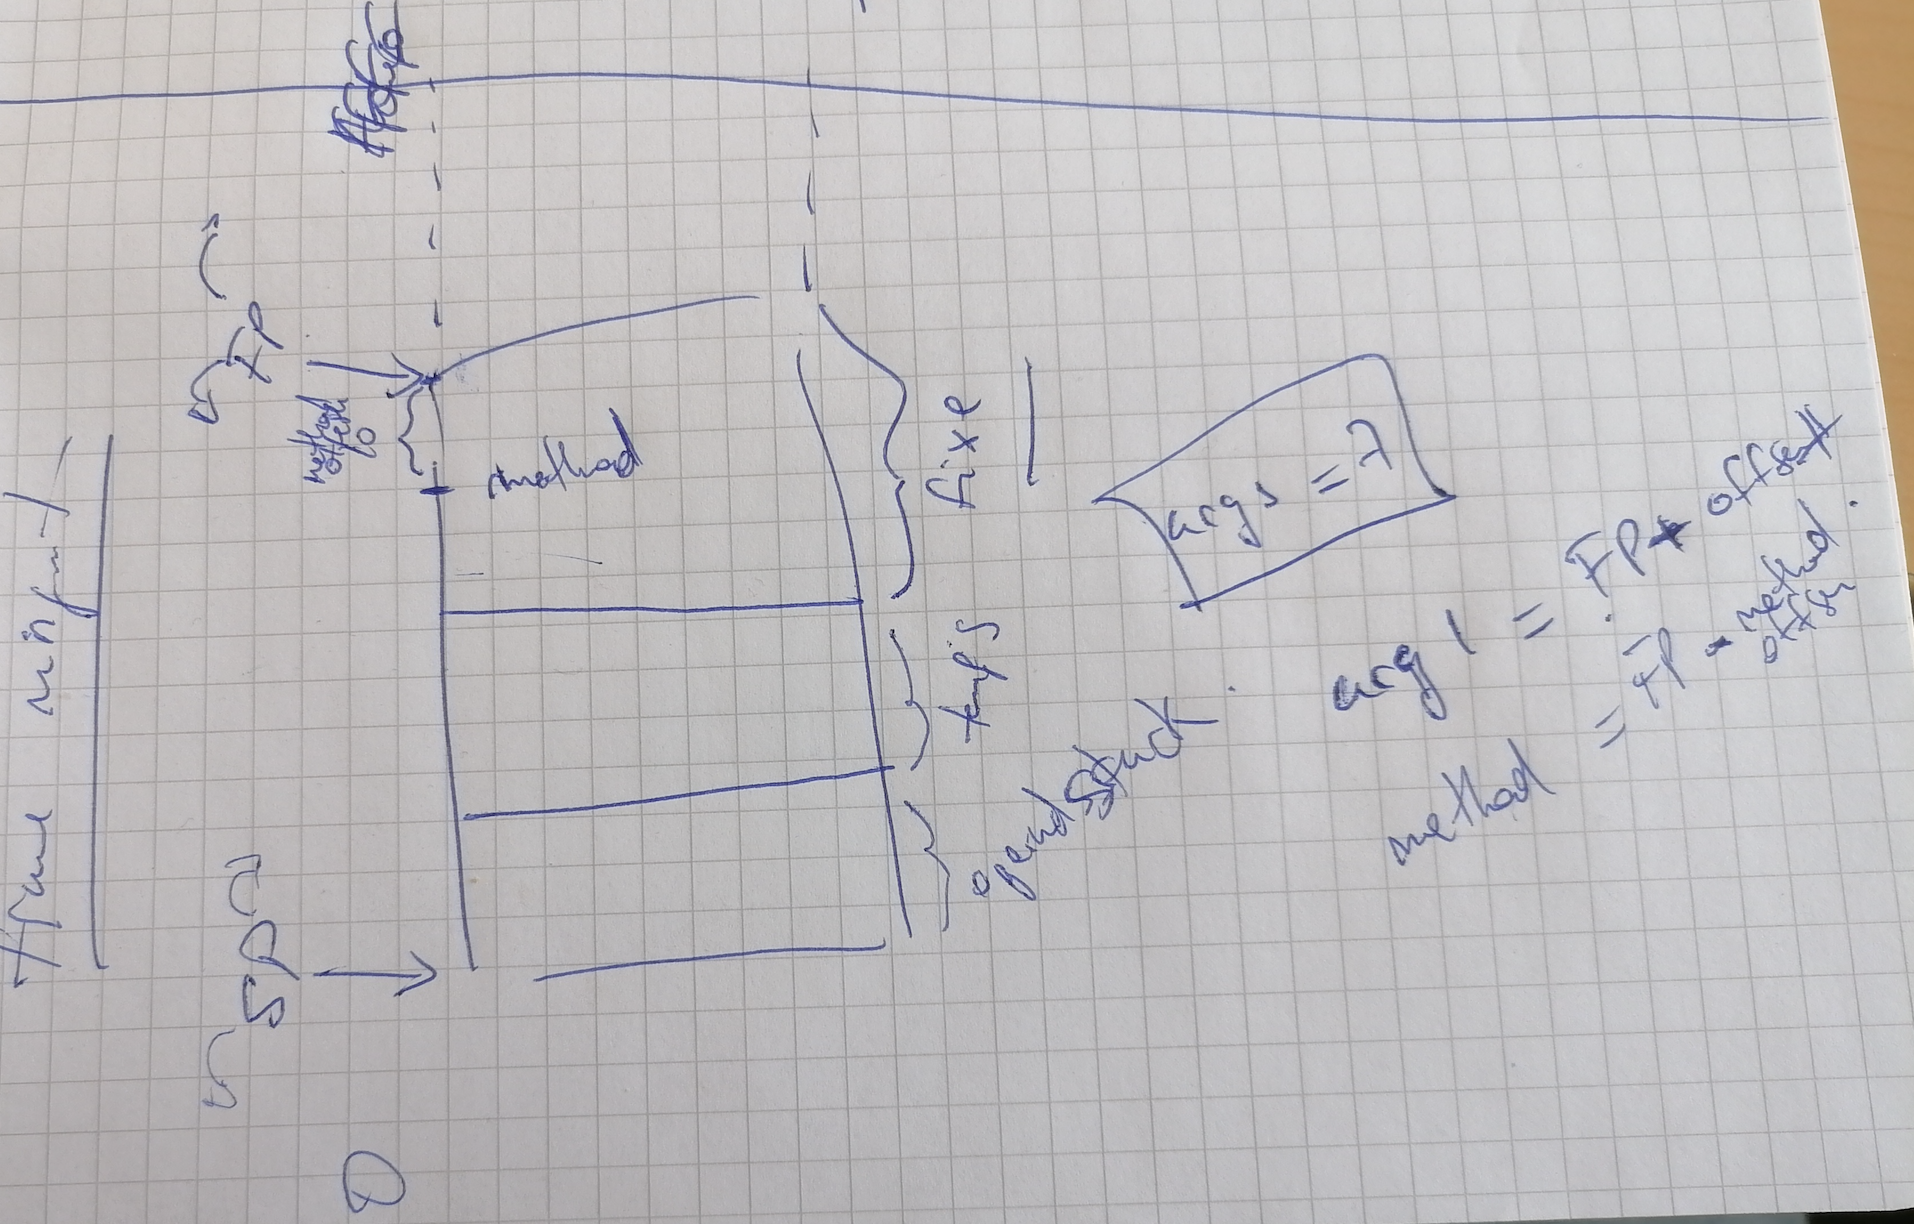 FP
method
offset
method
fixe
temps
operand Stack
SP
0
args = ?
arg 1 = FP + offset
method = FP - method
offset